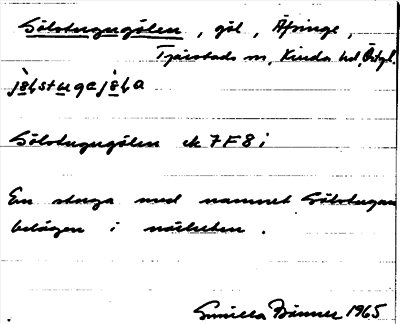 Gölstugugölen, göl, Äsvinge,
Tjärstads sn, Kinda hd, Östgl.
Gölstugugölen ek 7F8i
En stuga med namnet Gölstugan
belägen i närheten.
Gunilla 1965